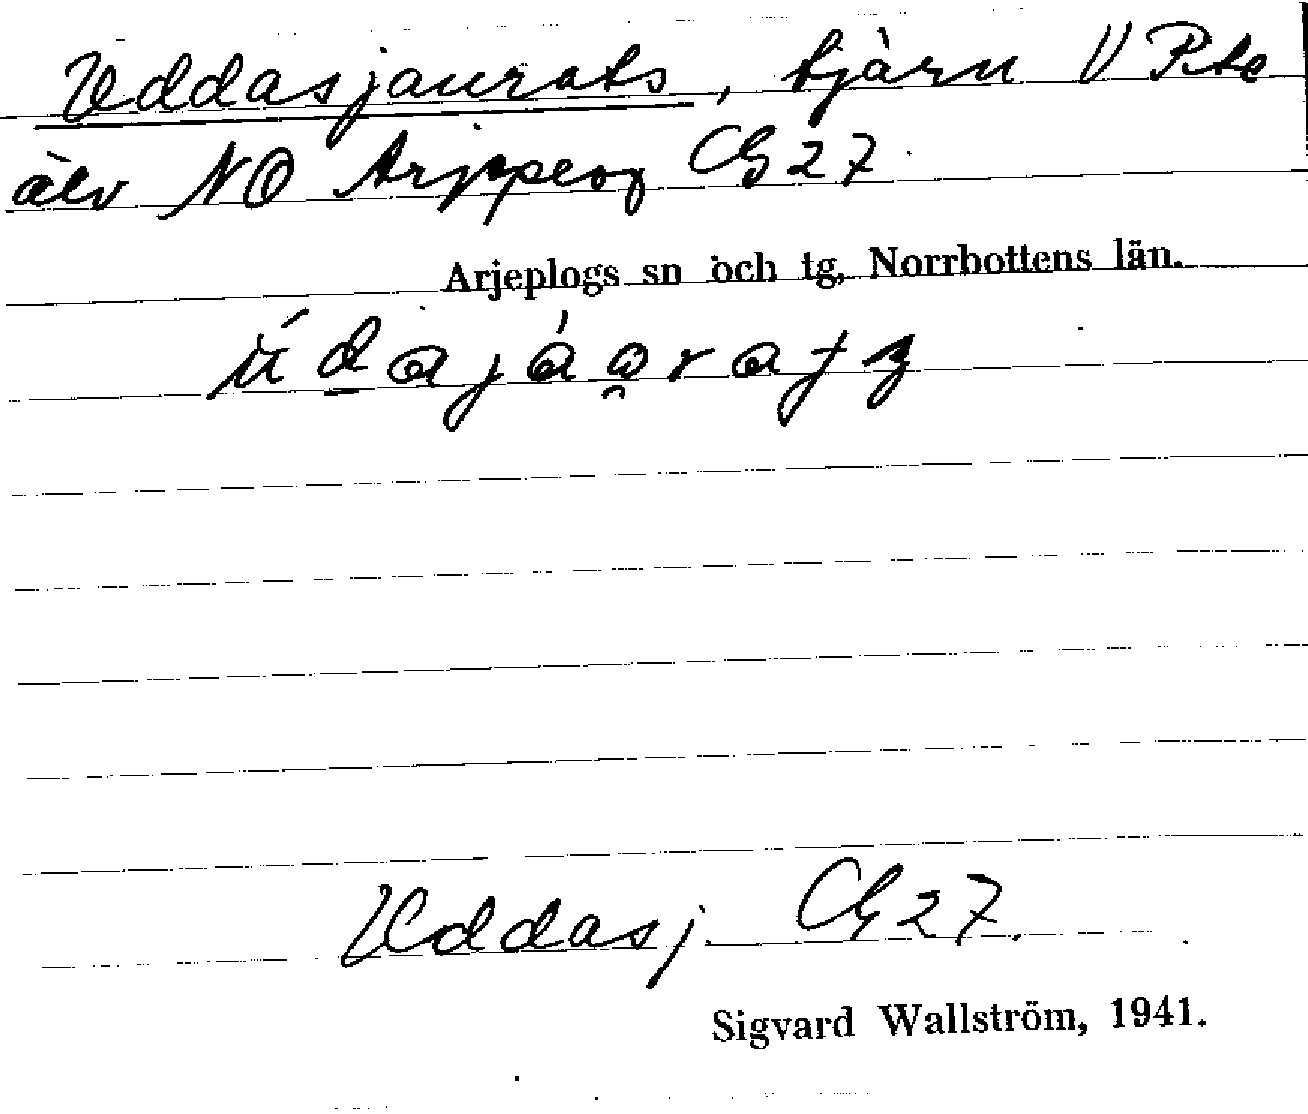 Uddasjaurats, tjärn V Pite
älv NO Arjeplog CG27
Arjeplogs sn och tg, Norrbottens län.
Uddasj. CG27.
Sigvard Wallström, 1941.